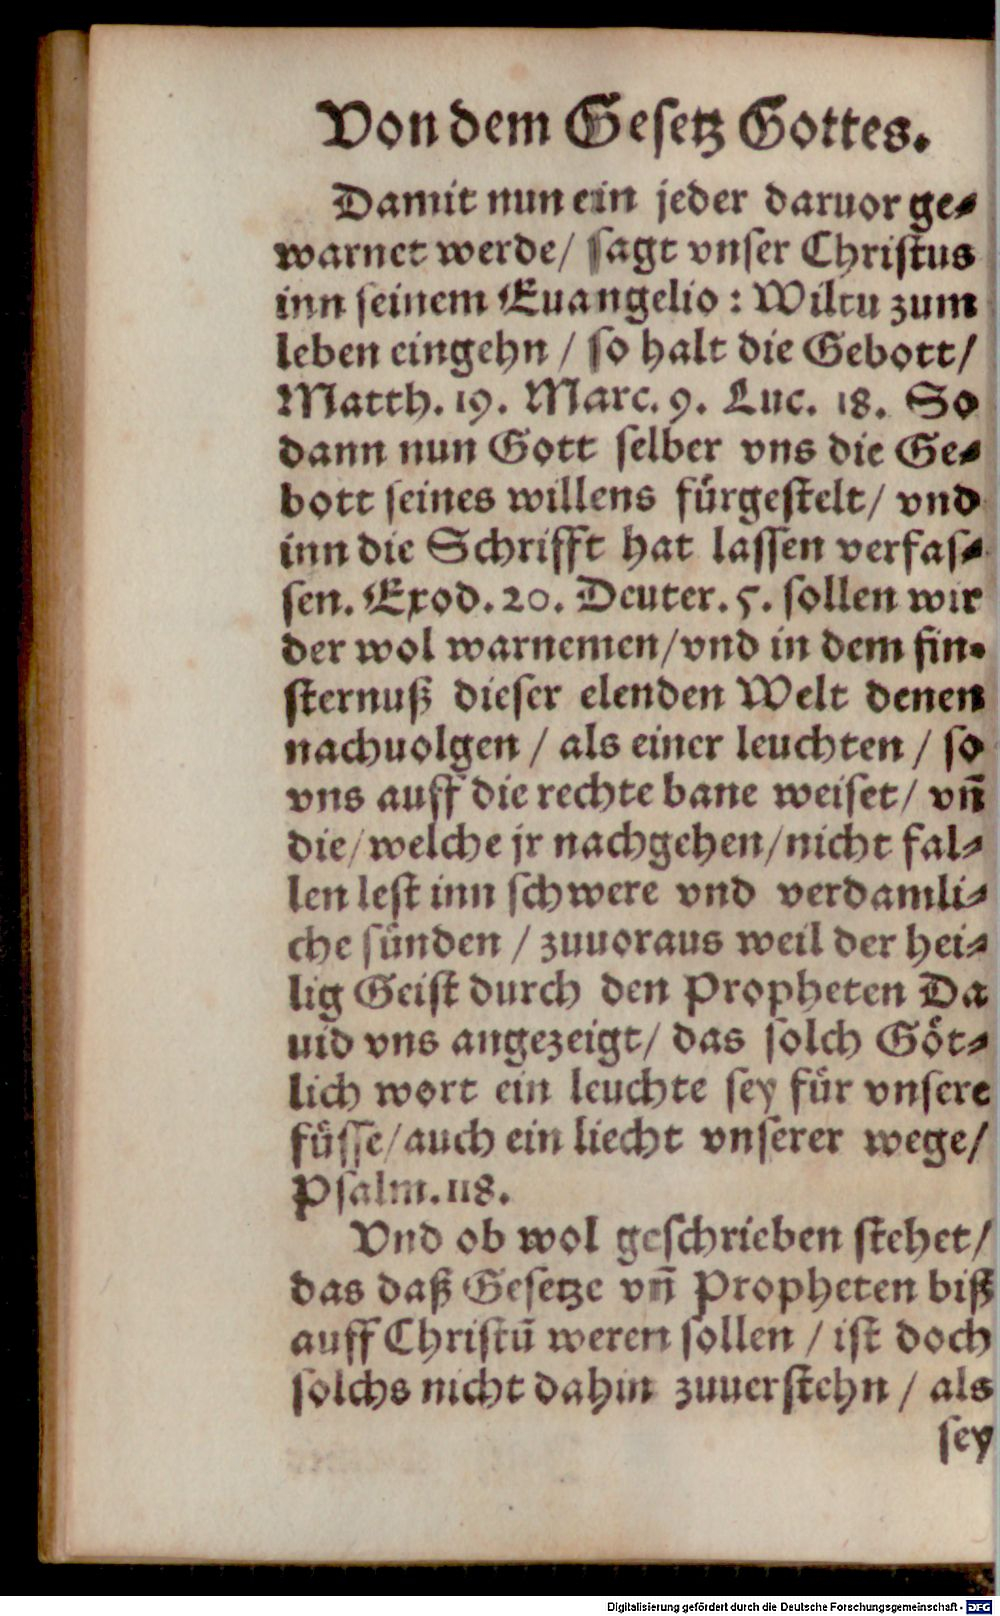 Von dem Gesetz Gottes.
Damit nun ein jeder daruor ge⸗
warnet werde/ sagt vnser Christus
inn seinem Euangelio : Wiltu zum
leben eingehn / so halt die Gebott/
Matth. 19. Marc. 9. Luc. 18. So
dann nun Gott selber vns die Ge⸗
bott seines willens fürgestelt/ vnd
inn die Schrifft hat lassen verfas⸗
sen. Exod. 20. Deuter. 5. sollen wir
der wol warnemen/vnd in dem fin⸗
sternuß dieser elenden Welt denen
nachuolgen / als einer leuchten / so
vns auff die rechte bane weiset/ vn̄
die/welche jr nachgehen/nicht fal⸗
len lest inn schwere vnd verdamli⸗
che sünden / zuuoraus weil der hei⸗
lig Geist durch den Propheten Da
uid vns angezeigt/ das solch Göt⸗
lich wort ein leuchte sey für vnsere
füsse/auch ein liecht vnserer wege/
Psalm. 118.
Vnd ob wol geschrieben stehet/
das daß Gesetze vn̄ Propheten biß
auff Christū weren sollen / ist doch
solchs nicht dahin zuuerstehn / als
sey
Digitalisierung gefördert durch die Deutsche Forschungsgemeinschaft - DFG